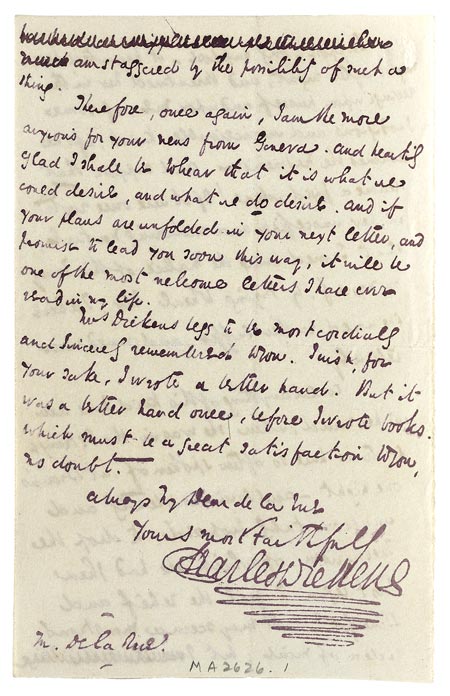 am staggered by the possibility of such a
thing.
Therefore, once again, I am the more
anxious for your news from Geneva. and heartily
glad I shall be to hear that it is what we
could desire, and what we do desire. and if
your plans are unfolded in your next letter, and
promise to lead you soon this way, it will be
one of the most welcome letters I have ever
read in my life.
Mrs Dickens begs to be most cordially
and sincerely remembered to you. I wish, for
your sake, I wrote a better hand. But it
was a better hand once, before I wrote books.
which must be a great satisfaction to you,
no doubt.—
always My Dear de la Rue
Yours most Faithfully
Charles Dickens
M. De la Rue.
MA2626.1